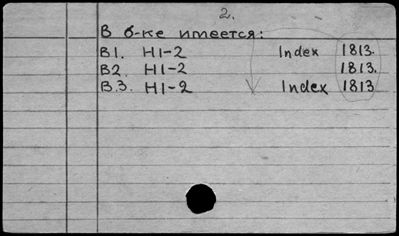 2.
В б-ке имеется:
В1. Н1-2 Index 1813.
В2. Н1-2 1813.
В.3. Н1-2 Index 1813